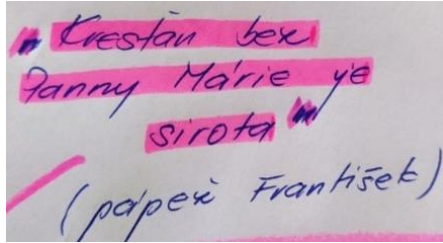 "Krestan bez
Panny Márie je
sirota"
(pápež František)